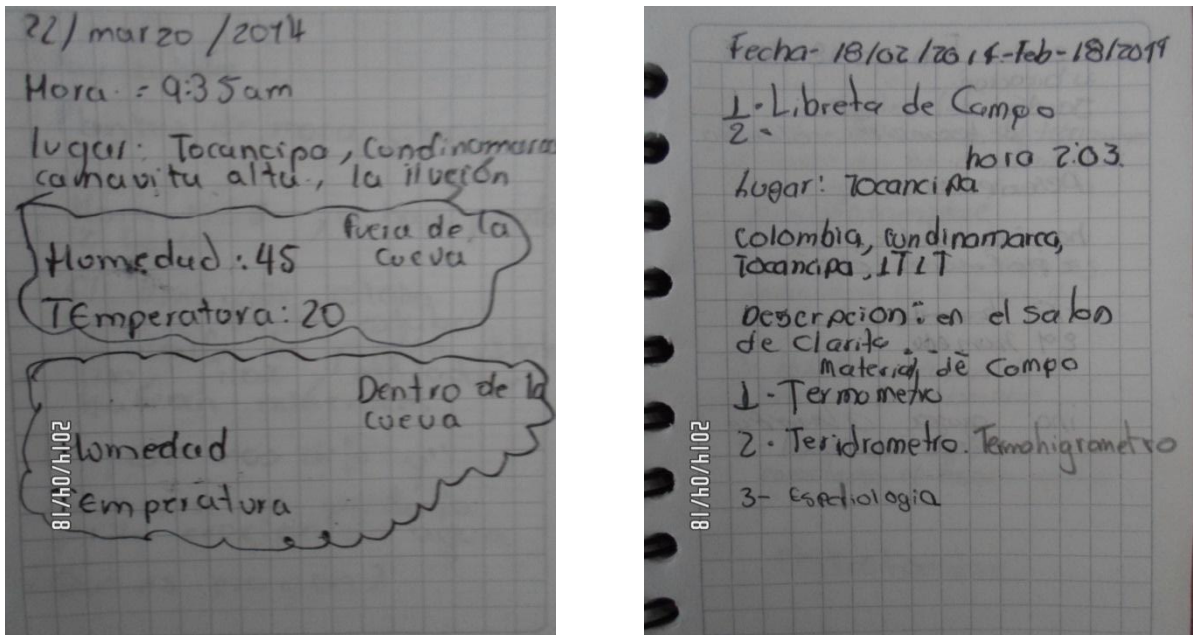 22/marzo/2014
Hora = 9:35am
lugar: Tocancipa, Cundinamarca
canavita alta, la ilución
fuera de la
cueva
Homedad: 45
TEmperatora: 20
Dentro de la
cueva
Homedad
TEmperatura
2014/04/18
Fecha- 18/02/2014-Feb-18/2014
1. Libreta de Campo
2.
hora 2:03.
Lugar: Tocancipa
Colombia, cundinamarca,
Tocancipa, ITIT
Descrpcion: en el salon
de clarita.
material de campo
1- Termometro
2. Teridrometro. Termohigrometro
3- Espediologia
2014/04/18